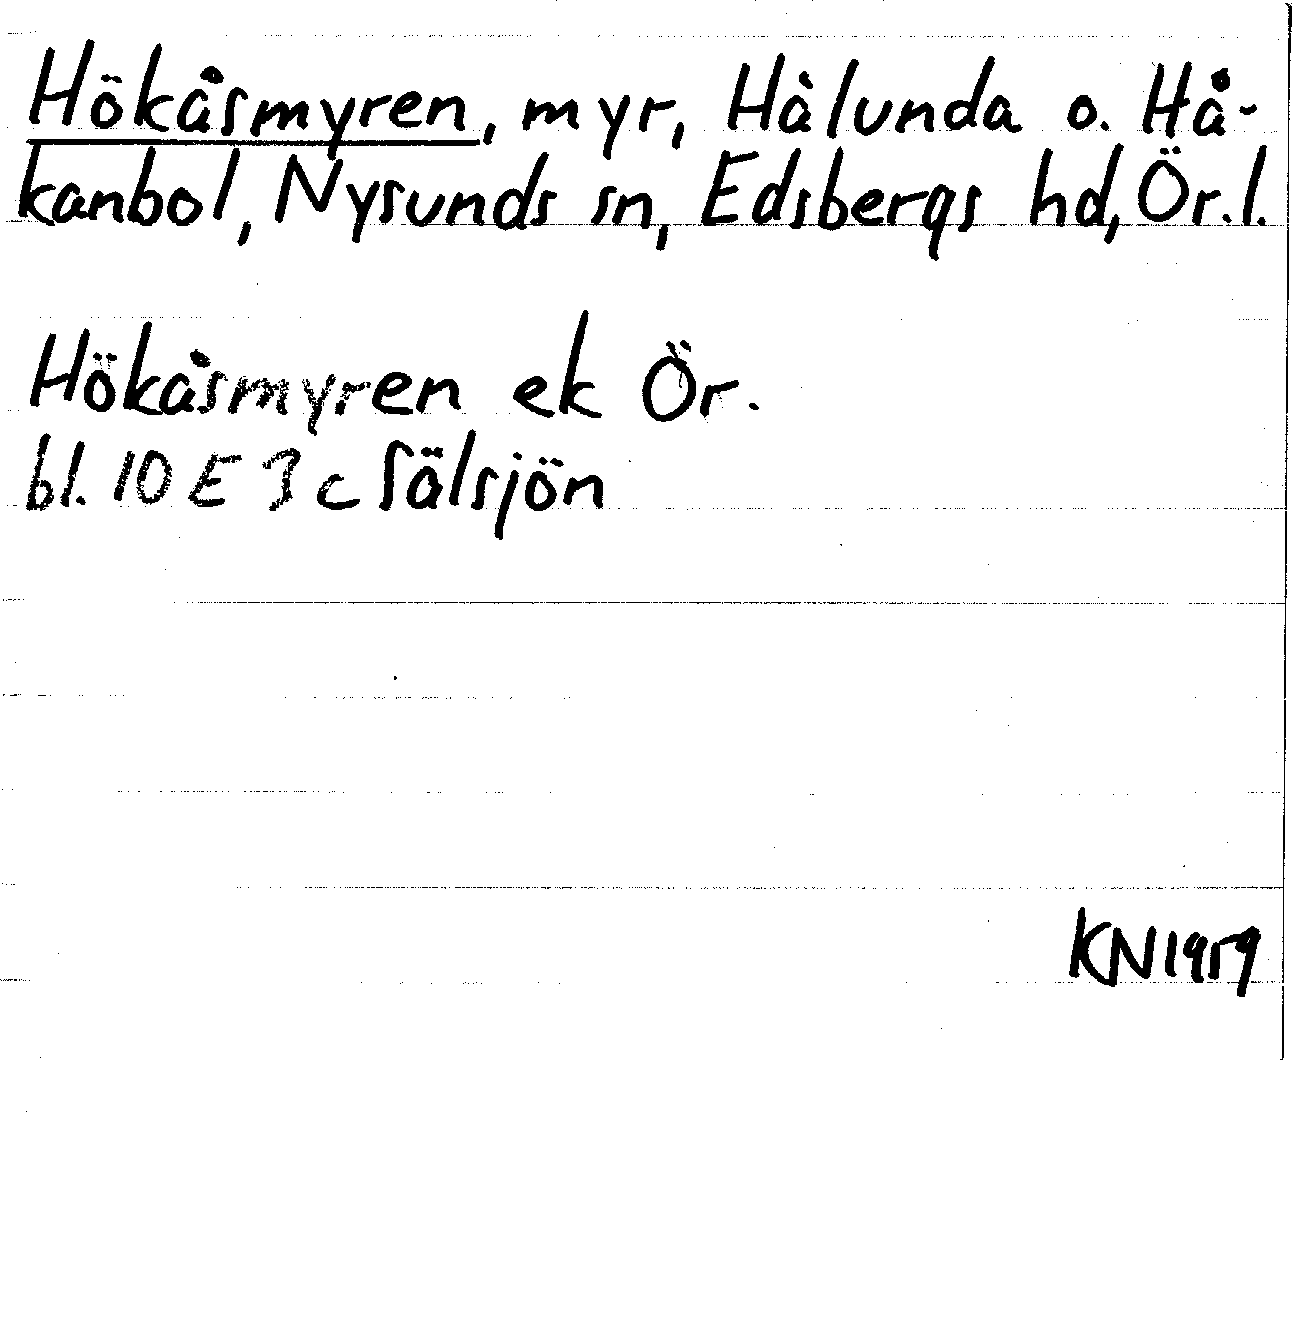 Hökåsmyren, myr, Hålunda o. Hå-
kanbol, Nysunds sn, Edsbergs hd, Ör. l.
Hökåsmyren ek Ör.
bl. 10 E 3 c Sälsjön
KN 1959